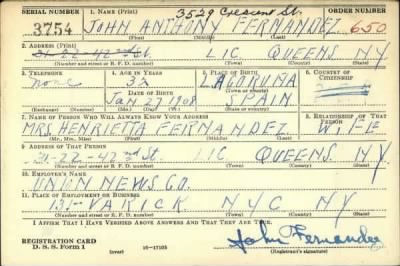 3529 Crescent St.
SERIAL NUMBER 1. NAME (Print) ORDER NUMBER
3754 JOHN ANTHONY FERNANDEZ 650
(First) (Middle) (Last)
2. ADDRESS (Print)
21-22-42nd St. LIC QUEENS NY
(Number and street or R. F. D. number) (Town) (County) (State)
3. TELEPHONE 4. AGE IN YEARS 5. PLACE OF BIRTH 6. COUNTRY OF CITIZENSHIP
none 32
DATE OF BIRTH (Town or county)
JAN 27 1908 SPAIN
(Exchange) (Number) (Mo.) (Day) (Yr.) (State or country)
7. NAME OF PERSON WHO WILL ALWAYS KNOW YOUR ADDRESS 8. RELATIONSHIP OF THAT PERSON
MRS. HENRIETTA FERNANDEZ WIFE
(Mr., Mrs., Miss) (First) (Middle) (Last)
9. ADDRESS OF THAT PERSON
21-22-42nd St. LIC QUEENS NY.
(Number and street or R. F. D. number) (Town) (County) (State)
10. EMPLOYER'S NAME
UNION NEWS CO.
11. PLACE OF EMPLOYMENT OR BUSINESS
131-VARICK NYC NY
(Number and street or R. F. D. number) (Town) (County) (State)
I AFFIRM THAT I HAVE VERIFIED ABOVE ANSWERS AND THAT THEY ARE TRUE.
REGISTRATION CARD
D. S. S. Form 1 (over) 16-17105 John Fernandez
(Registrant's signature)